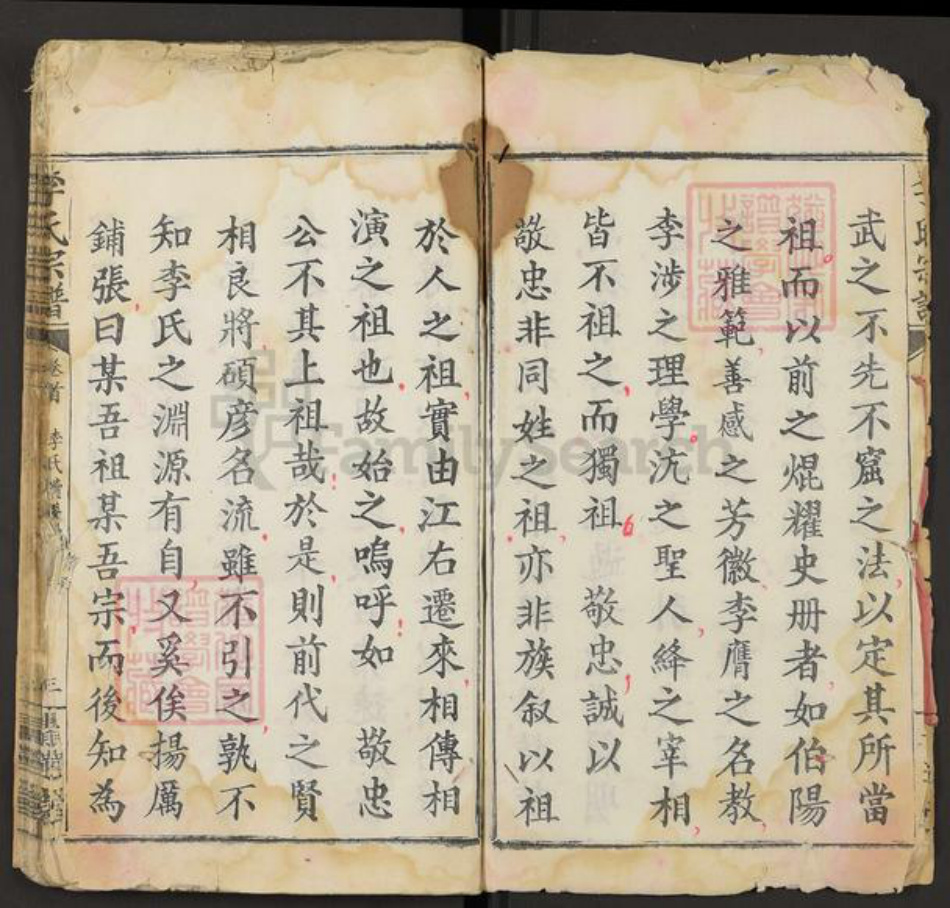 武之不先不窟之法以定其所當
祖而以前之焜耀史册者如伯陽
之雅範善感之芳徽李膺之名教
李涉之理學沆之聖人絳之宰相
皆不祖之而獨祖 敬忠誠以
敬忠非同姓之祖亦非族叙以祖
於人之祖實由江右遷來相傳相
演之祖也故始之嗚呼如 敬忠
公不其上祖哉於是則前代之賢
相良將碩彦名流雖不引之孰不
知李氏之淵源有自又奚俟揚厲
鋪張曰某吾祖某吾宗而後知為
李氏宗譜
卷首
三
FamilySearch